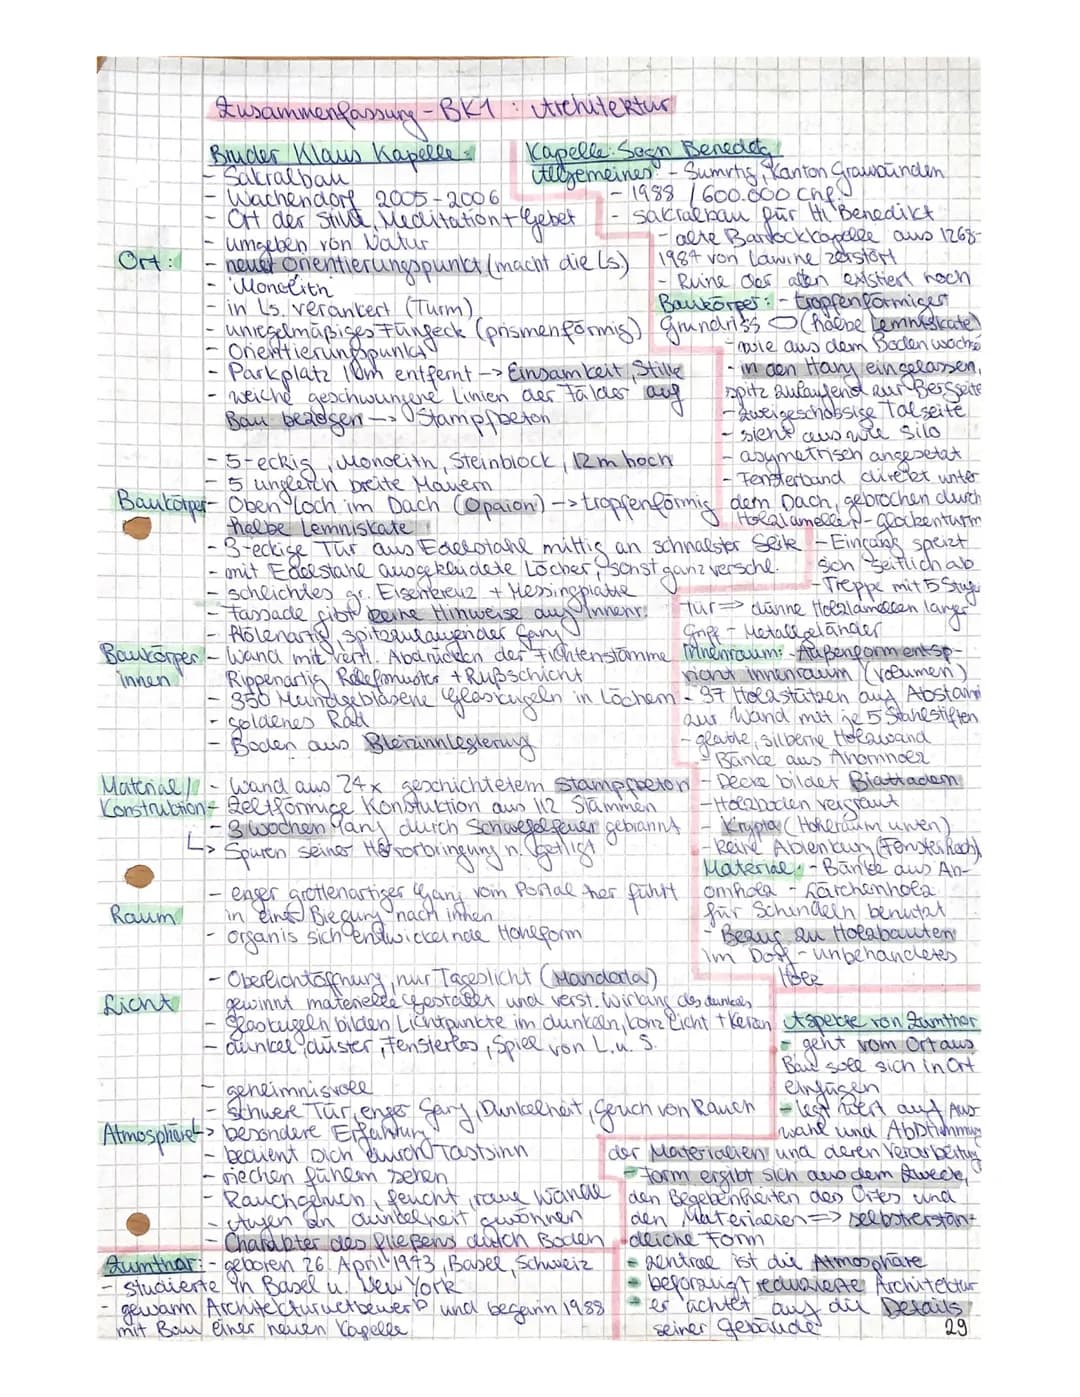 Zusammenfassung - BK1 : Architektur
Bruder Klaus Kapelle:
- Sakralbau
- Wachendorf 2005-2006
- Ort der Stille, Meditation + Gebet
- umgeben von Natur
Ort: - neuer Orientierungspunkt (macht die Ls)
- Monolith
- in Ls. verankert (Turm)
- unregelmäßiges Fünfeck (prismenförmig)
- Orientierungspunkt
- Parkplatz 10m entfernt -> Einsamkeit, Stille
- weiche geschwungene Linien der Fälder auf
Bau bezogen -> Stampfbeton
- 5-eckig, Monolith, Steinblock, 12m hoch
- 5 ungleich breite Mauern
Baukörper - Oben Loch im Dach (Opaion) -> tropfenförmig
halbe Lemniskate
- 3-eckige Tür aus Edelstahl mittig an schmalster Seite
- mit Edelstahl ausgekleidete Löcher, sonst ganz versch.
- schlichtes gr. Eisenkreuz + Messingplatte
- Fassade gibt keine Hinweise auf Innenr.
- Hölenartig, spitzzulaufender Gang
Baukörper innen - Wand mit vert. Abdrücken der Fichtenstämme
Rippenartig Reliefmuster + Rußschicht
- 350 Mundgeblasene Glaskugeln in Löchern
- goldenes Rad
- Boden aus Bleizinnlegierung
Material / Konstruktion - Wand aus 24x geschichtetem Stampfbeton
- Zeltförmige Konstuktion aus 112 Stämmen
- 3 Wochen lang durch Schwelfeuer gebrannt
↳ Spuren seiner Hervorbringung n. getilgt
- enger grottenartiger Gang vom Portal her führt
Raum in einer Biegung nach innen
- organis sich entwickelnde Hohlform
- Oberlichtöffnung, nur Tageslicht (Mandorla)
Licht gewinnt materielle Gestallt und verst. Wirkung des dunkels
- Glaskugeln bilden Lichtpunkte im dunkeln, bzw. Licht + Kerzen
- dunkel, düster, Fensterlos, Spiel von L. u. S.
- geheimnisvoll
- schwere Tür, enger Gang, Dunkelheit, Geruch von Rauch
Atmosphäre -> besondere Erfahrung
- bedient sich durch Tastsinn
- riechen fühlen sehen
- Rauchgeruch, feucht, raue Wände
- Augen an dunkelheit gewöhnen
- Charakter des fließens durch Boden
Zumthor: - geboren 26. April 1943, Basel, Schweiz
- studierte in Basel u. New York
- gewann Architekturwetbewerb und begann 1988
mit Bau einer neuen Kapelle
Kapelle: Sogn Benedetg
Allgemeines: - Sumvitg, Kanton Graubünden
- 1988 / 600.000 CHF
- Sakralbau für Hl. Benedikt
- alte Barockkapelle aus 1268-
1984 von Lawine zerstört
- Ruine der alten existiert noch
Baukörper: - tropfenförmiger
Grundriss (halbe Lemniskate)
- wie aus dem Boden wachs
- in den Hang eingelassen,
spitz zulaufend zur Bergseite
- zweigeschossige Talseite
- sieht aus wie Silo
- asymetrisch angesetzt
- Fensterband direkt unter
dem Dach, gebrochen durch
Holzlamellen - Glockenturm
- Eingang speizt
sich seitlich ab
- Treppe mit 5 Stuf
Tür => dünne Holzlamellen langer
Griff - Metallgeländer
Innenraum: - Außenform entsp-
richt innenraum (volumen)
- 37 Holzstützen auf Abstand
zur Wand mit je 5 Stahlstiften
- glatte, silberne Holzwand
- Bänke aus Ahornholz
- Decke bildet Blattadern
- Holzboden vergraut
- Krypta (Hohlraum unten)
- keine Ablenkung (Fenster hoch)
Material: - Bänke aus Ah-
ornholz - Lärchenholz
für Schindeln benutzt
- Bezug zu Holzbauten
im Dorf - unbehandeltes
Holz
Aspekte von Zumthor
- geht vom Ort aus
Bau soll sich in Ort
einfügen
- legt Wert auf Aus-
wahl und Abstimmung
der Materialien und deren Verarbeitung
- Form ergibt sich aus dem Zweck,
den Begebenheiten des Ortes und
den Materialien => selbstverstän-
dliche Form
- zentral ist die Atmosphäre
- beforzugt reduzierte Architektur
- er achtet auf die Details
seiner Gebäude
29